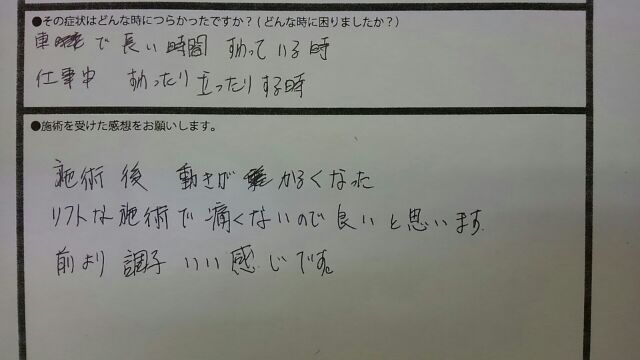 ●その症状はどんな時につらかったですか？(どんな時に困りましたか？)
車で長い時間すわっている時
仕事中 すわったり立ったりする時
●施術を受けた感想をお願いします。
施術後 動きがかるくなった
ソフトな施術で痛くないので良いと思います。
前より調子いい感じです。